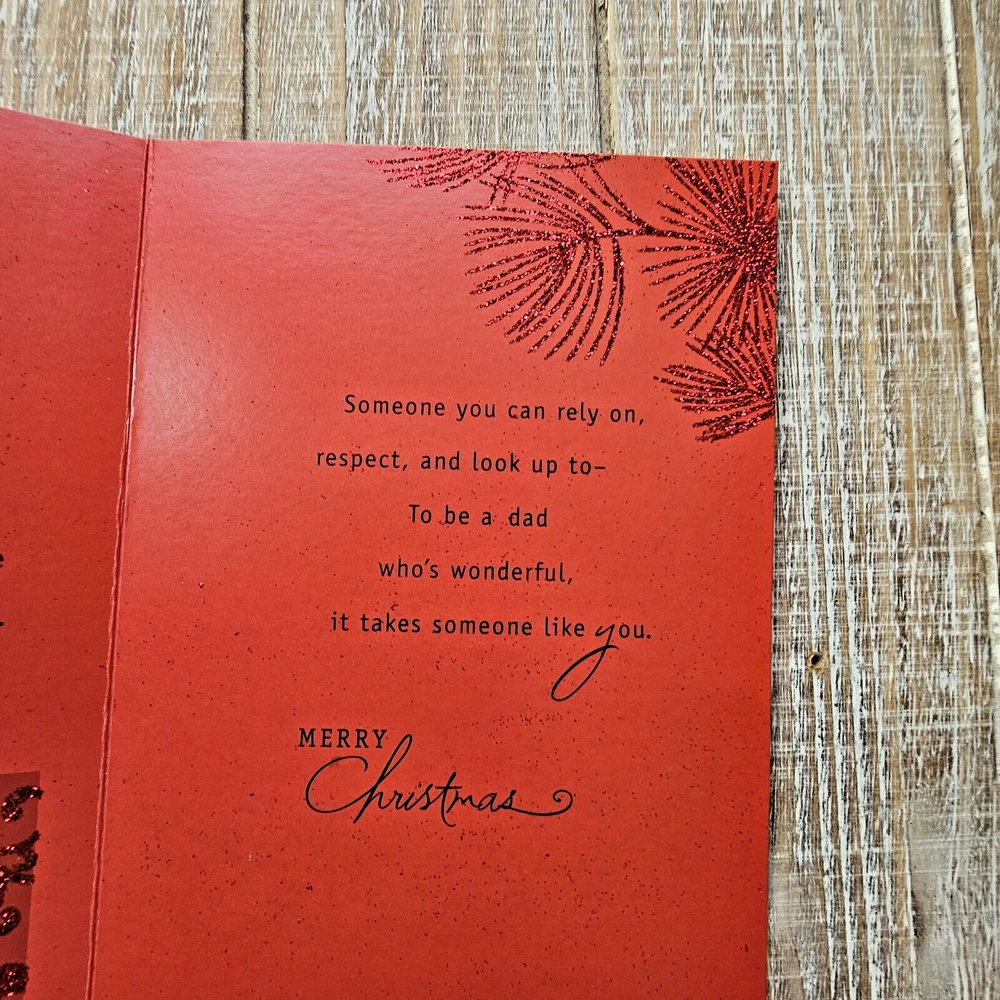 Someone you can rely on,
respect, and look up to–
To be a dad
who's wonderful,
it takes someone like you.
MERRY
Christmas